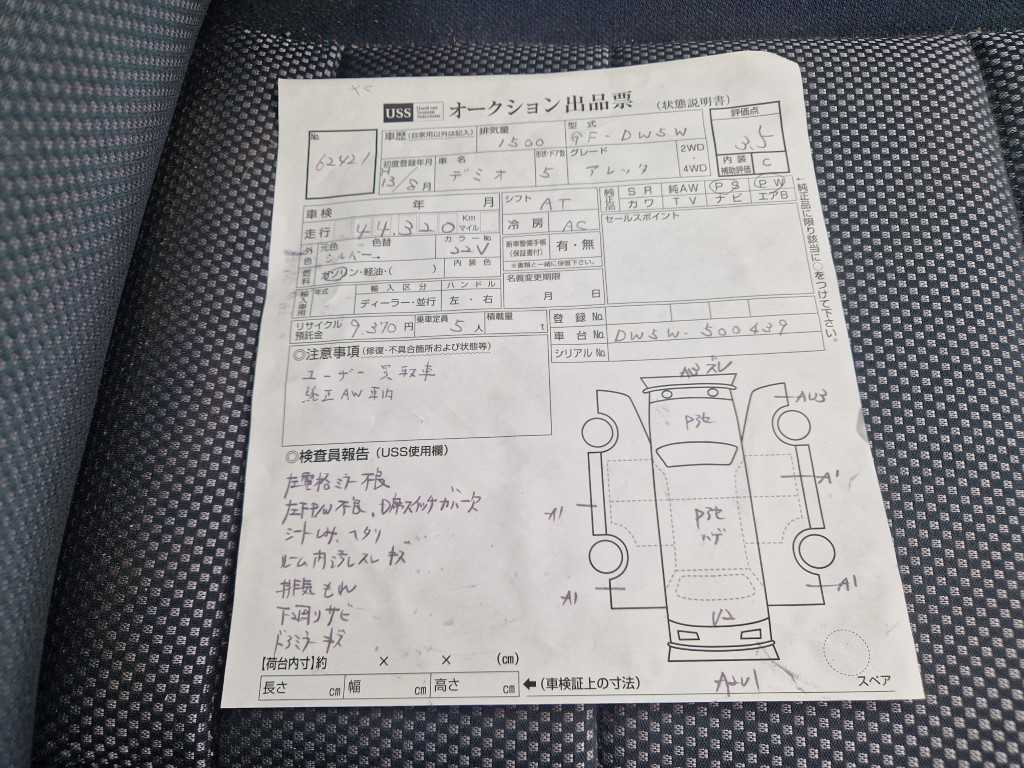 USS Used car System Solutions オークション 出品票 (状態説明書)
№ 62421
車歴 (自家用以外は記入)
排気量 1500
型式 GF-DW5W
評価点 3.5
内装補助評価 C
初度登録年月 H13/8月
車名 デミオ
形状・ドア数 5
グレード アレック
2WD・4WD
車検 年 月
シフト AT
純正品 SR 純AW PS PW
カワ TV ナビ エアB
走行 44,320 Km マイル
冷房 AC
セールスポイント
外色 元色 シルバー 色替
カラー№ 22V
新車整備手帳(保証書付) 有・無
※書類と一緒に保管下さい。
燃料 ガソリン・軽油・( )
内装色
名義変更期限
月 日
年式
輸入区分 ディーラー・並行
ハンドル 左・右
←純正品に限り該当に○をつけて下さい。
リサイクル預託金 9,370円
乗車定員 5人
積載量 t
登録 №
車台 № DW5W-500439
シリアル №
◎注意事項(修復・不具合箇所および状態等)
ユーザー買取車
純正AW車内
◎検査員報告(USS使用欄)
左電格ミラー不良
シートしみ、ヘタリ
ルーム内汚レスレキズ
排気もれ
下廻りサビ
ドアミラーキズ
AU3
A1
A1
A1
A1
ハゲ
【荷台内寸】約 × × (㎝)
長さ ㎝ 幅 ㎝ 高さ ㎝
←(車検証上の寸法)
スペア